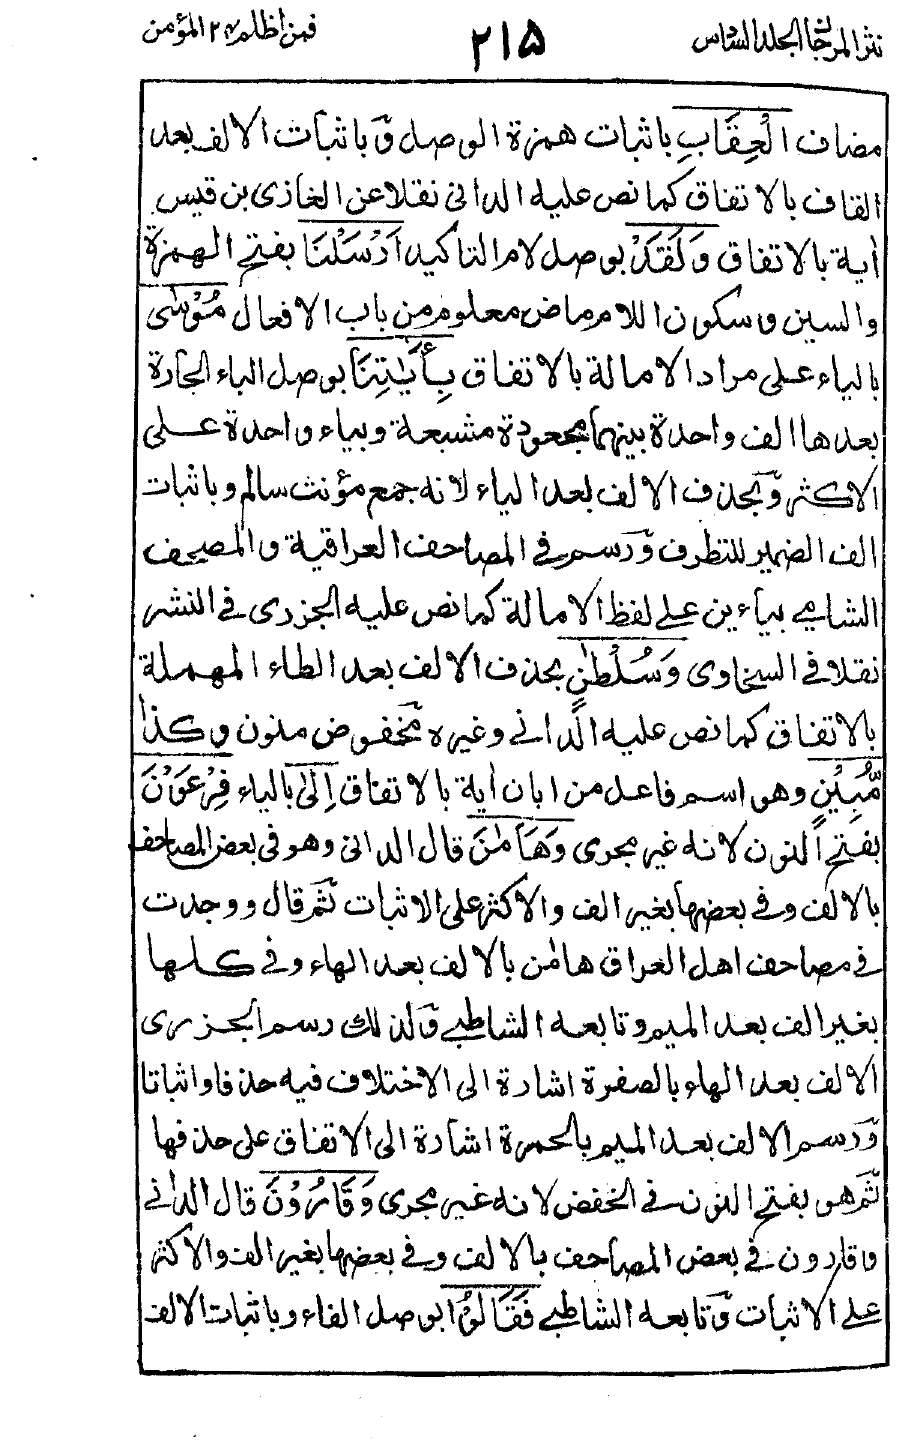 نثر المرجان الجلد السادس ٢١٥ فمن اظلم ٢٤ المؤمن
مضاف الْعِقَابِ باثبات همزة الوصل وَباثبات الالف بعد
القاف بالاتفاق كما نص عليه الدانى نقلا عن الغازى بن قيس
اٰية بالاتفاق وَلَقَدْ بوصل لام التاكيد اَرْسَلْنَا بفتح الهمزة
والسين وسكون اللام ماض معلوم من باب الافعال مُوْسٰى
بالياء على مراد الامالة بالاتفاق بِأٰيٰتِنَا بوصل الباء الجارة
بعدها الف واحدة بينهما مجعودة مشبعة وبياء واحدة على
الاكثر وَبحذف الالف بعد الياء لانه جمع مؤنث سالم وباثبات
الف الضمير للتطرف وَرسم في المصاحف العراقية والمصحف
الشامي بياءين على لفظ الامالة كما نص عليه الجزرى في النشر
نقلا في السخاوى وَسُلْطٰنٍ بحذف الالف بعد الطاء المهملة
بالاتفاق كما نص عليه الدانى وغيره مخفوض منون وكذا
مُّبِيْنٍ وهو اسم فاعل من ابان اٰية بالاتفاق اِلٰى بالياء فِرْعَوْنَ
بفتح النون لانه غير مجرى وَهَامٰنَ قال الدانى وهو فى بعض المصاحف
بالالف وفي بعضها بغير الف والاكثر على الاثبات ثم قال ووجدت
في مصاحف اهل العراق هامٰن بالالف بعد الهاء وفي كلها
بغير الف بعد الميم وتابعه الشاطبي وَلذلك رسم الجزرى
الالف بعد الهاء بالصفرة اشارة الى الاختلاف فيه حذفا واثباتا
وَرسم الالف بعد الميم بالحمرة اشارة الى الاتفاق على حذفها
ثم هو بفتح النون في الخفض لانه غير مجرى وَقَارُوْنَ قال الدانى
وقارون في بعض المصاحف بالالف وفي بعضها بغير الف والاكثر
على الاثبات وَتابعه الشاطبي فَقَالُوْا بوصل الفاء وباثبات الالف